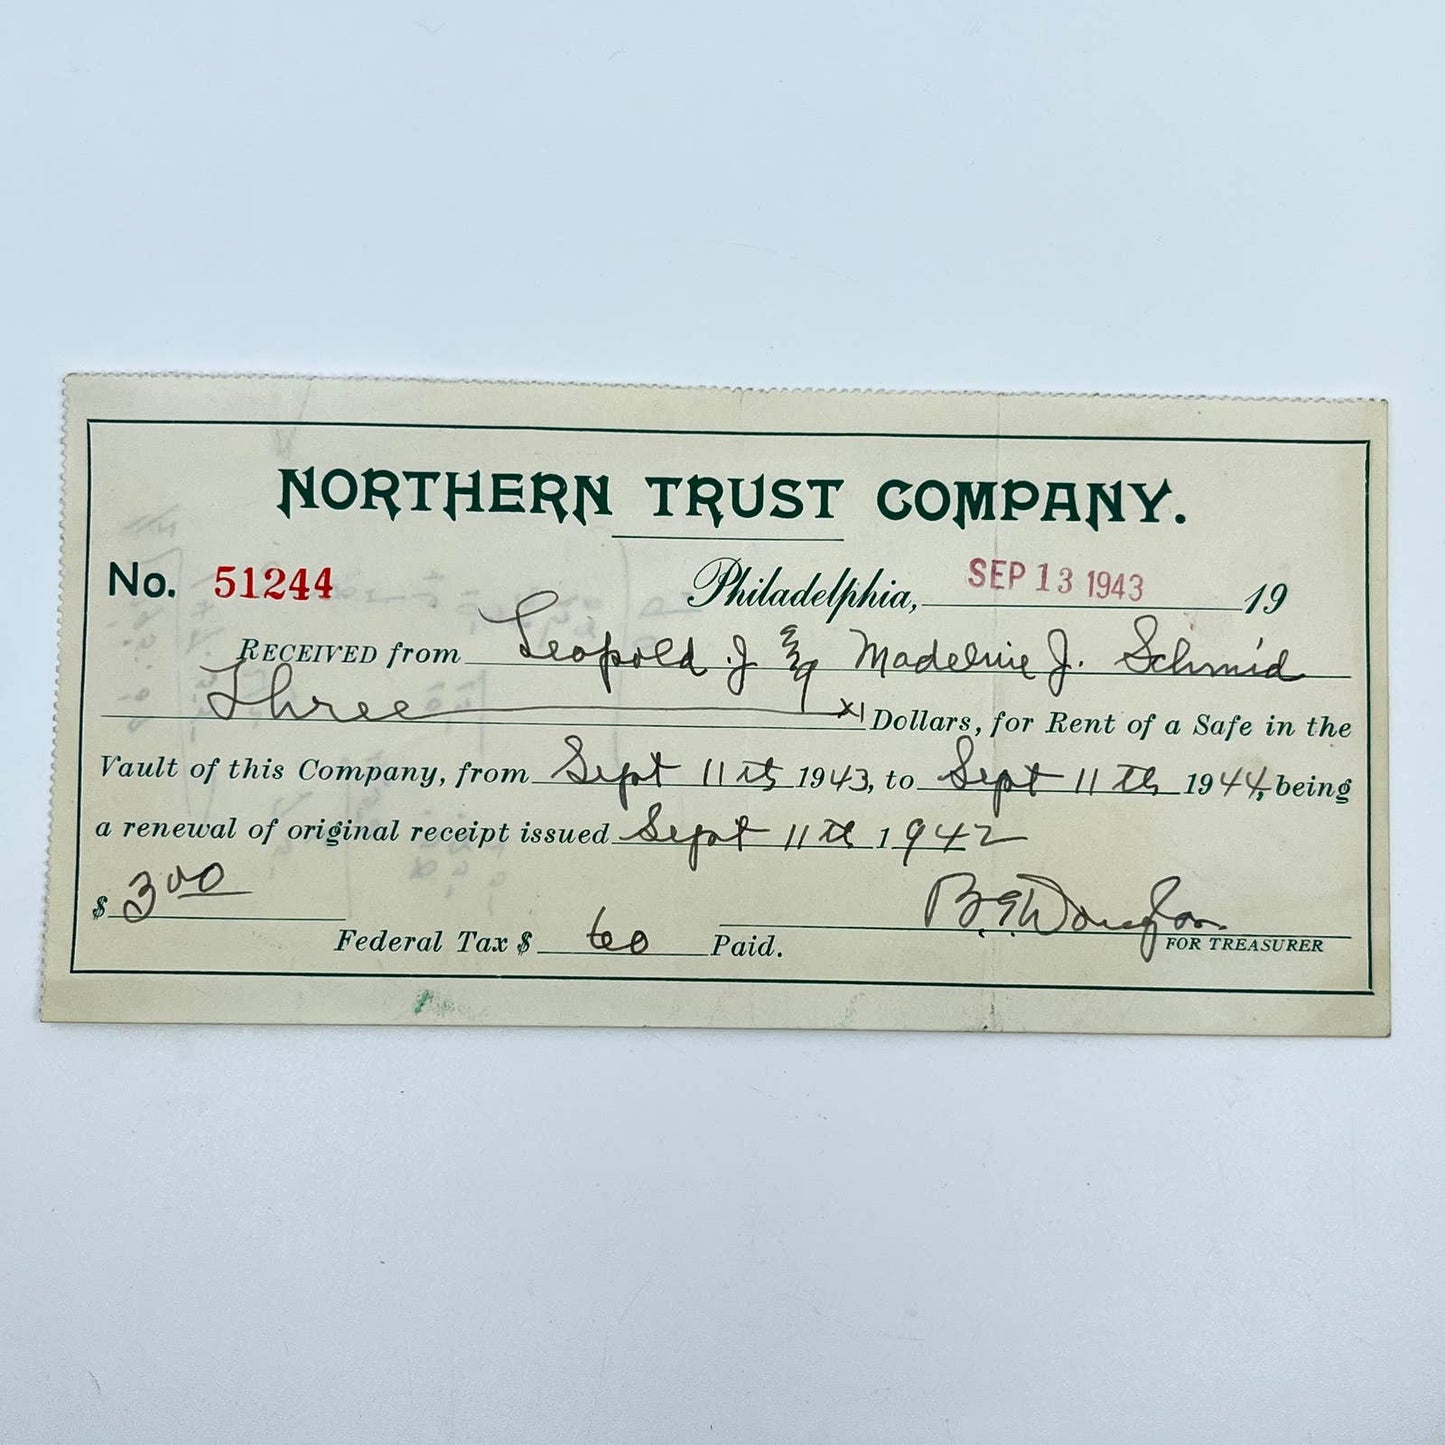 NORTHERN TRUST COMPANY.
No. 51244 Philadelphia, SEP 13 1943 19
RECEIVED from Leopold J. Madeline J. Schmid
Three Dollars, for Rent of a Safe in the
Vault of this Company, from Sept 11th 1943, to Sept 11th 1944, being
a renewal of original receipt issued Sept 11th 1942
$ 3 00
Federal Tax $ 60 Paid. FOR TREASURER